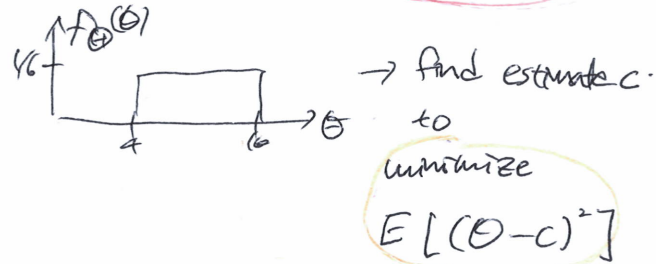 f_Θ(θ)
1/6
4
θ
→ find estimate c.
to
minimize
E[(Θ-c)²]